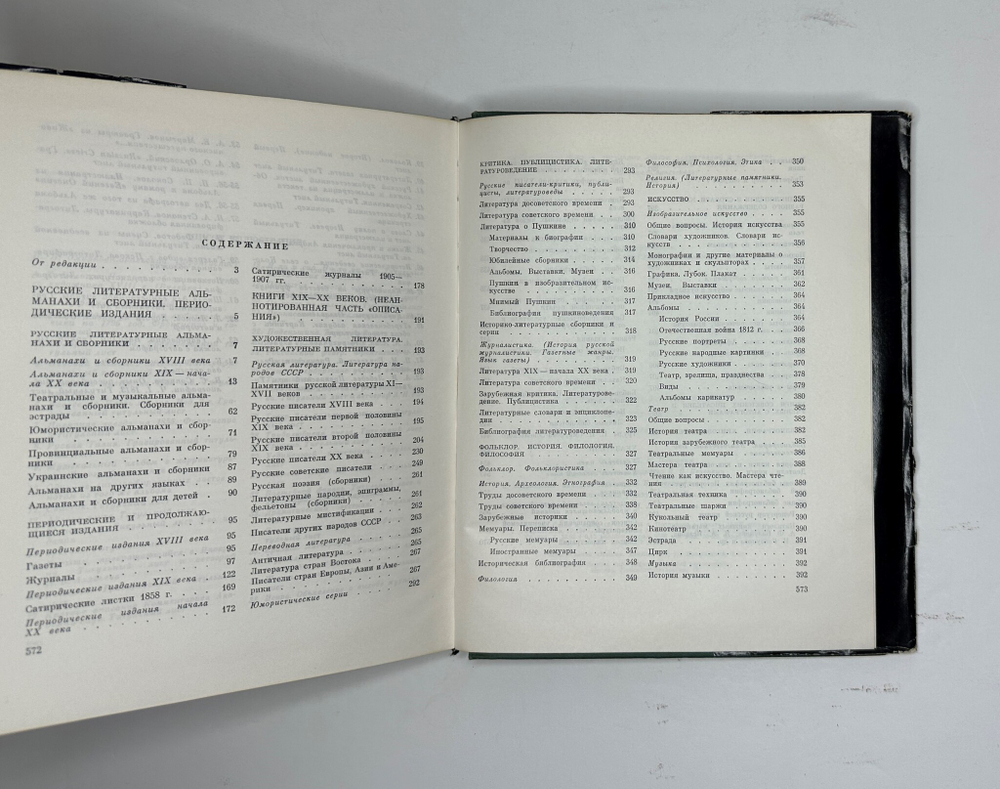 СОДЕРЖАНИЕ
От редакции . . . . . . . . 3
РУССКИЕ ЛИТЕРАТУРНЫЕ АЛЬ-
МАНАХИ И СБОРНИКИ. ПЕРИО-
ДИЧЕСКИЕ ИЗДАНИЯ . . . . . . 5
РУССКИЕ ЛИТЕРАТУРНЫЕ АЛЬМА-
НАХИ И СБОРНИКИ . . . . . . 7
Альманахи и сборники XVIII века 7
Альманахи и сборники XIX — нача-
ла XX века . . . . . . . . 13
Театральные и музыкальные альма-
нахи и сборники. Сборники для
эстрады . . . . . . . . . 62
Юмористические альманахи и сбор-
ники . . . . . . . . . . 71
Провинциальные альманахи и сбор-
ники . . . . . . . . . . 79
Украинские альманахи и сборники 87
Альманахи на других языках . . 89
Альманахи и сборники для детей . 90
ПЕРИОДИЧЕСКИЕ И ПРОДОЛЖАЮ-
ЩИЕСЯ ИЗДАНИЯ . . . . . . . 95
Периодические издания XVIII века 95
Газеты . . . . . . . . . 95
Журналы . . . . . . . . . 97
Периодические издания XIX века . 122
Сатирические листки 1858 г. . . . 169
Периодические издания начала
XX века . . . . . . . . . 172
572
Сатирические журналы 1905—
1907 гг. . . . . . . . . . 178
КНИГИ XIX—XX ВЕКОВ. (НЕАН-
НОТИРОВАННАЯ ЧАСТЬ «ОПИСА-
НИЯ») . . . . . . . . . . 191
ХУДОЖЕСТВЕННАЯ ЛИТЕРАТУРА.
ЛИТЕРАТУРНЫЕ ПАМЯТНИКИ . . . 193
Русская литература. Литература на-
родов СССР . . . . . . . . 193
Памятники русской литературы XI—
XVII веков . . . . . . . . 193
Русские писатели XVIII века . . . 194
Русские писатели первой половины
XIX века . . . . . . . . . 195
Русские писатели второй половины
XIX века . . . . . . . . . 204
Русские писатели XX века . . . . 230
Русские советские писатели . . . . 249
Русская поэзия (сборники) . . . . 261
Литературные пародии, эпиграммы,
фельетоны (сборники) . . . . . 261
Литературные мистификации . . . 262
Писатели других народов СССР . . 263
Переводная литература . . . . . 265
Античная литература . . . . . . 265
Литература стран Востока . . . . 267
Писатели стран Европы, Азии и Аме-
рики . . . . . . . . . . 267
Юмористические серии . . . . . 292
КРИТИКА. ПУБЛИЦИСТИКА. ЛИТЕ-
РАТУРОВЕДЕНИЕ . . . . . . . 293
Русские писатели-критики, публи-
цисты, литературоведы . . . . . 293
Литература досоветского времени . 293
Литература советского времени . . 300
Литература о Пушкине . . . . . 310
Материалы к биографии . . . . 310
Творчество . . . . . . . . 312
Юбилейные сборники . . . . . 314
Альбомы. Выставки. Музеи . . . 316
Пушкин в изобразительном ис-
кусстве . . . . . . . . . 316
Мнимый Пушкин . . . . . . 317
Библиография пушкиноведения 317
Историко-литературные сборники и
серии . . . . . . . . . . 318
Журналистика. (История русской
журналистики. Газетные жанры.
Язык газеты) . . . . . . . . 319
Литература XIX — начала XX века . 319
Литература советского времени . . 320
Зарубежная критика. Литературове-
дение. Публицистика . . . . . 322
Литературные словари и энциклопе-
дии . . . . . . . . . . 323
Библиография литературоведения . . 325
ФОЛЬКЛОР. ИСТОРИЯ. ФИЛОЛОГИЯ.
ФИЛОСОФИЯ . . . . . . . . 327
Фольклор. Фольклористика . . . 327
История. Археология. Этнография . 332
Труды досоветского времени . . . 332
Труды советского времени . . . . 338
Зарубежные историки . . . . . 340
Мемуары. Переписка . . . . . . 342
Русские мемуары . . . . . . 342
Иностранные мемуары . . . . 347
Историческая библиография . . . 348
Филология . . . . . . . . 349
Философия. Психология. Этика . . 350
Религия. (Литературные памятники.
История) . . . . . . . . . 353
ИСКУССТВО . . . . . . . . 355
Изобразительное искусство . . . . 355
Общие вопросы. История искусства 355
Словари художников. Словари ис-
кусств . . . . . . . . . . 356
Монографии и другие материалы о
художниках и скульпторах . . . . 357
Графика. Лубок. Плакат . . . . 361
Музеи. Выставки . . . . . . . 362
Прикладное искусство . . . . . 364
Альбомы . . . . . . . . . 364
История России . . . . . . 364
Отечественная война 1812 г. . . 366
Русские портреты . . . . . . 368
Русские народные картинки . . 368
Русские художники . . . . . 370
Театр, зрелища, празднества . . 378
Виды . . . . . . . . . . 379
Альбомы карикатур . . . . . 380
Театр . . . . . . . . . . 382
Общие вопросы . . . . . . . 382
История театра . . . . . . . 382
История зарубежного театра . . . 385
Театральные мемуары . . . . . 386
Мастера театра . . . . . . . 388
Чтение как искусство. Мастера чте-
ния . . . . . . . . . . 389
Театральная техника . . . . . 390
Театральные шаржи . . . . . . 390
Кукольный театр . . . . . . . 390
Кинотеатр . . . . . . . . . 390
Эстрада . . . . . . . . . 391
Цирк . . . . . . . . . . 391
Музыка . . . . . . . . . 392
История музыки . . . . . . . 392
573